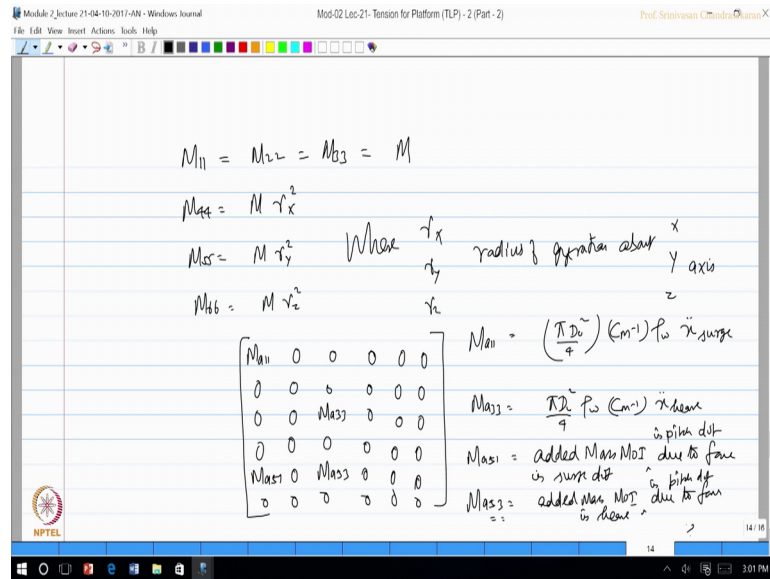 Module 2_lecture 21-04-10-2017-AN - Windows Journal
Mod-02 Lec-21- Tension for Platform (TLP) - 2 (Part - 2)
Prof. Srinivasan Chandrasekaran
File Edit View Insert Actions Tools Help
M11 = M22 = M33 = M
M44 = M rx²
M55 = M ry²
M66 = M rz²
Where rx ry rz radius of gyration about X Y Z axis
[Ma11 0 0 0 0 0
0 0 0 0 0 0
0 0 Ma33 0 0 0
0 0 0 0 0 0
Ma51 0 Ma53 0 0 0
0 0 0 0 0 0]
Ma11 = (πDc²/4) (Cm-1) ρw ẍ surge
Ma33 = πDc²/4 ρw (Cm-1) ẍ heave
Ma51 = added Mass MoI in pitch dof due to force in surge dof
Ma53 = added Mass MoI in pitch dof due to force in heave "
NPTEL
14 / 16
14
3:01 PM